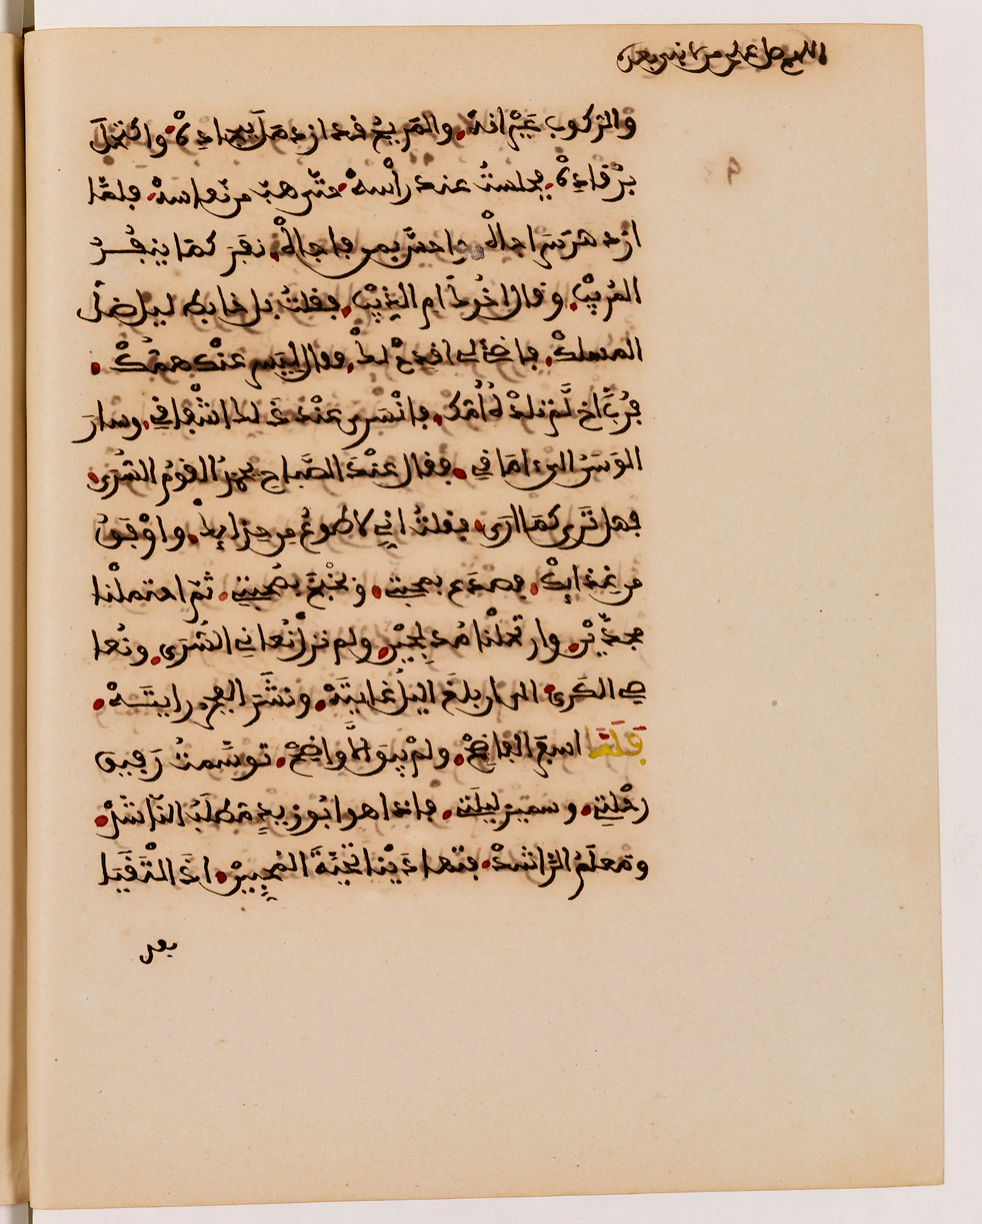 اللهم صل على من لا نبي بعده
والرّكوب عَيْرانهْ. والمُريحُ قد ازدمَلَ ببجادِهْ. واكتحَلَ
برُقادِهْ. فجلستُ عند رأسهْ. حتّى هبّ من نعاسهْ. فلمّا
ازدهَرَ سراجاهْ. واحسّ بمن فاجاهْ. نفَر كما ينفُرُ
المُريبْ. وقال اخُوكَ ام الذيبْ. فقلتُ بل خابط ليل ضلّ
المسلكْ. فاضئ لى اقدحْ لكْ. فقال ليَسر عنْك همُّكْ.
فرُبَّ اخ لَّم تلدْهُ أُمّك. فانْسَرى عنْد ذَلك اشْفاقي. وسار
الوَسَنُ الى ءاماقي. فقال عنْدَ الصّباح يحمدُ القومُ السُّرى.
فهل تَرى كمَا ارَى. فقلتُ انى لاطوعُ من حذايكْ. واوْفقُ
من غذايكْ. فصدَع بمحبتى. وبخْبَخَ بصُحبتى. ثمّ احتملْنا
مجدّينْ. وارتحلْنا مُدلِجينْ. ولم نزلْ نُعانى السُّرَى. ونُعا
صى الكَرى. الى ان بلغَ اليلُ غايتَهْ. ونشَر الفجر رايتَهْ.
فَلَمّا اسفرَ الفاضِحْ. ولمْ يبقَ الّا واضحْ. توسّمتُ رَفيق
رحْلتى. وسمير ليلَتى. فاذا هو ابُو زيدٍ مَطلَبُ النّاشدْ.
ومَعلَمُ الرّاشدْ. فتهادَيْنا تحيّةَ المُحِبينْ. اذَا الْتَقَيَا
بعد